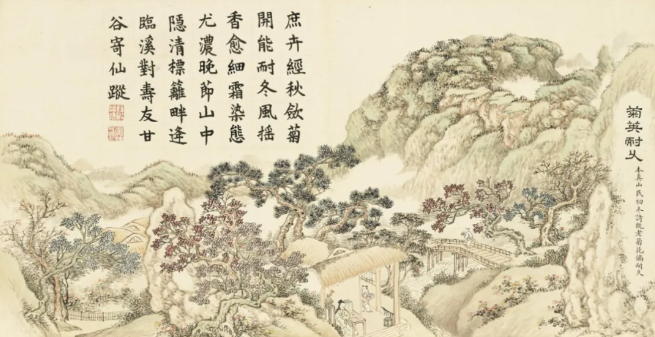 菊英耐久
本真山民初冬詩老菊花偏耐久
庶卉經秋斂菊
開能耐冬風搖
香愈細霜染態
尤濃晚節山中
隱清標籬畔逢
臨溪對壽友甘
谷寄仙蹤